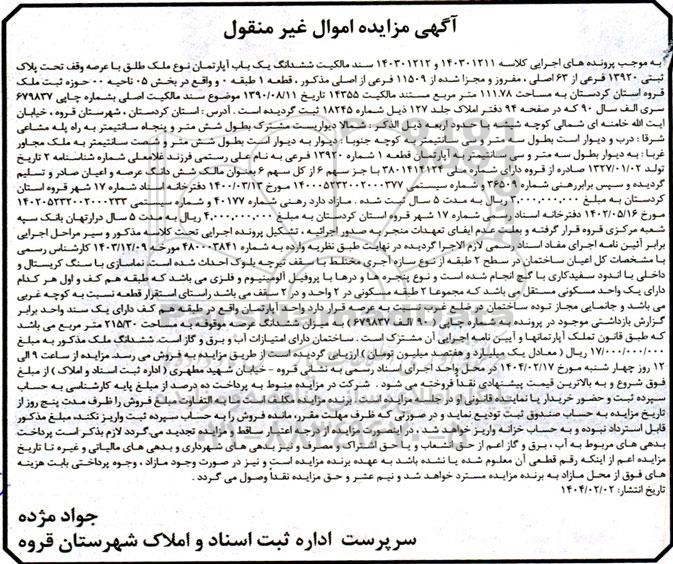 آگهی مزایده اموال غیر منقول
به موجب پرونده های اجرایی کلاسه ۱۴۰۳۰۱۲۱۱ و ۱۴۰۳۰۱۲۱۲ سند مالکیت ششدانگ یک باب آپارتمان نوع ملک طلق با عرصه وقف تحت پلاک
ثبتی ۱۳۹۲۰ فرعی از ۶۳ اصلی ، مفروز و مجزا شده از ۱۱۵۰۹ فرعی از اصلی مذکور ، قطعه ۱ طبقه ۰ و واقع در بخش ۰۵ ناحیه ۰۰ حوزه ثبت ملک
قروه استان کردستان به مساحت ۱۱۱.۷۸ متر مربع مستند مالکیت ۱۴۳۵۵ تاریخ ۱۳۹۰/۰۸/۱۱ موضوع سند مالکیت اصلی بشماره چاپی ۶۷۹۸۳۷
سری الف سال ۹۰ که در صفحه ۹۴ دفتر املاک جلد ۱۲۷ ذیل شماره ۱۸۲۴۵ ثبت گردیده است . آدرس : استان کردستان ، شهرستان قروه ، خیابان
آیت الله خامنه ای شمالی کوچه شینه به حدود اربعه ذیل الذکر : شمالا دیواریست مشترک بطول شش متر و پنجاه سانتیمتر به راه پله مشاعی
شرقا : درب و دیوار است بطول سه متر و سی سانتیمتر به کوچه جنوبا : دیوار به دیوار است بطول شش متر و شصت سانتیمتر به ملک مجاور
غربا : به دیوار بطول سه متر و سی سانتیمتر به آپارتمان قطعه ۱ شماره ۱۳۹۲۰ فرعی به نام علی رستمی فرزند غلامعلی شماره شناسنامه ۲ تاریخ
تولد ۱۳۲۷/۰۱/۰۲ صادره از قروه دارای شماره ملی ۳۸۰۱۴۱۴۱۲۴ با جز سهم ۶ از کل سهم ۶ بعنوان مالک شش دانگ عرصه و اعیان صادر و تسلیم
گردیده و سپس برابر رهنی شماره ۳۶۵۰۹ شماره سیستمی ۱۴۰۰۰۵۲۳۲۰۰۲۰۰۰۳۷۷ مورخ ۱۴۰۰/۰۳/۱۲ دفترخانه اسناد شماره ۱۷ شهر قروه استان
کردستان به مبلغ ۲,۰۰۰,۰۰۰,۰۰۰ ریال به مدت ۵ سال ثبت شده . مازاد دارد رهنی شماره ۴۰۱۷۷ و شماره سیستمی ۱۴۰۲۰۵۲۳۲۰۰۲۰۰۰۲۳۳
مورخ ۱۴۰۲/۰۵/۱۶ دفترخانه اسناد رسمی شماره ۱۷ شهر قروه استان کردستان به مبلغ ۴,۰۰۰,۰۰۰,۰۰۰ ریال به مدت ۵ سال در ارتهان بانک سپه
شعبه مرکزی قروه قرار گرفته و بعلت عدم ایفای تعهدات منجر به صدور اجرائیه ، تشکیل پرونده اجرایی تحت کلاسه مذکور و سیر مراحل اجرایی
برابر آئین نامه اجرای مفاد اسناد رسمی لازم الاجرا گردیده در نهایت طبق نظریه وارده به شماره ۴۸۰۰۰۳۸۴۱ مورخه ۱۴۰۳/۱۲/۰۹ کارشناس رسمی
با مشخصات کل اعیان ساختمان در سطح ۲ طبقه از نوع سازه آجری مختلط با سقف تیرچه بلوک احداث شده است . نماسازی با سنگ کریستال و
داخلی با اندود سفیدکاری با گچ انجام شده است و نوع پنجره ها و درها با پروفیل آلومینیوم و فلزی می باشد که طبقه هم کف و اول هر کدام
دارای یک واحد مسکونی مستقل می باشد که مجموعا ۲ طبقه مسکونی در ۲ واحد و در ۲ سقف می باشد راستای استقرار قطعه نسبت به کوچه غربی
می باشد و جانمایی مجاز توده ساختمان در ضلع غربی نسبت به عرصه قرار دارد واحد آپارتمان واقع در طبقه هم کف دارای یک سند واحد برابر
گزارش بازداشتی موجود در پرونده به شماره چاپی ( ۹۰ الف ۶۷۹۸۳۷ ) به میزان ششدانگ عرصه موقوفه به مساحت ۲۱۵/۳۰ متر مربع می باشد
که طبق قانون تملک آپارتمانها و آیین نامه اجرایی آن مشترک است . ساختمان دارای امتیازات آب و برق و گاز است. ششدانگ ملک مذکور به مبلغ
۱۷/۰۰۰/۰۰۰/۰۰۰ ریال ( معادل یک میلیارد و هفتصد میلیون تومان ) ارزیابی گردیده است از طریق مزایده به فروش می رسد. مزایده از ساعت ۹ الی
۱۲ روز چهار شنبه مورخ ۱۴۰۴/۰۲/۱۷ در محل واحد اجرای اسناد رسمی به نشانی قروه - خیابان شهید مطهری ( اداره ثبت اسناد و املاک ) از مبلغ
فوق شروع و به بالاترین قیمت پیشنهادی نقداً فروخته می شود . شرکت در مزایده منوط به پرداخت ده درصد از مبلغ پایه کارشناسی به حساب
سپرده ثبت و حضور خریدار یا نماینده قانونی او در جلسه مزایده است. برنده مزایده مکلف است ما به التفاوت مبلغ فروش را ظرف مدت پنج روز از
تاریخ مزایده به حساب صندوق ثبت تودیع نماید و در صورتی که ظرف مهلت مقرر، مانده فروش را به حساب سپرده ثبت واریز نکند، مبلغ مذکور
قابل استرداد نبوده و به حساب خزانه واریز خواهد شد . در اینصورت عملیات فروش از درجه اعتبار ساقط و مزایده تجدید می گردد لازم بذکر است پرداخت
بدهی های مربوط به آب ، برق و گاز اعم از حق انشعاب و یا حق اشتراک و مصرف و نیز بدهی های شهرداری و بدهی های مالیاتی و غیره تا تاریخ
مزایده اعم از اینکه رقم قطعی آن معلوم شده یا نشده باشد به عهده برنده مزایده است و نیز در صورت وجود مازاد ، وجوه پرداختی بابت هزینه
های فوق از محل مازاد به برنده مزایده مسترد خواهد شد و نیم عشر و حق مزایده نقداً وصول می گردد .
تاریخ انتشار: ۱۴۰۴/۰۲/۰۲
جواد مژده
سرپرست اداره ثبت اسناد و املاک شهرستان قروه
۰۲۱-۸۸۳۴۹۶۷۰-۵